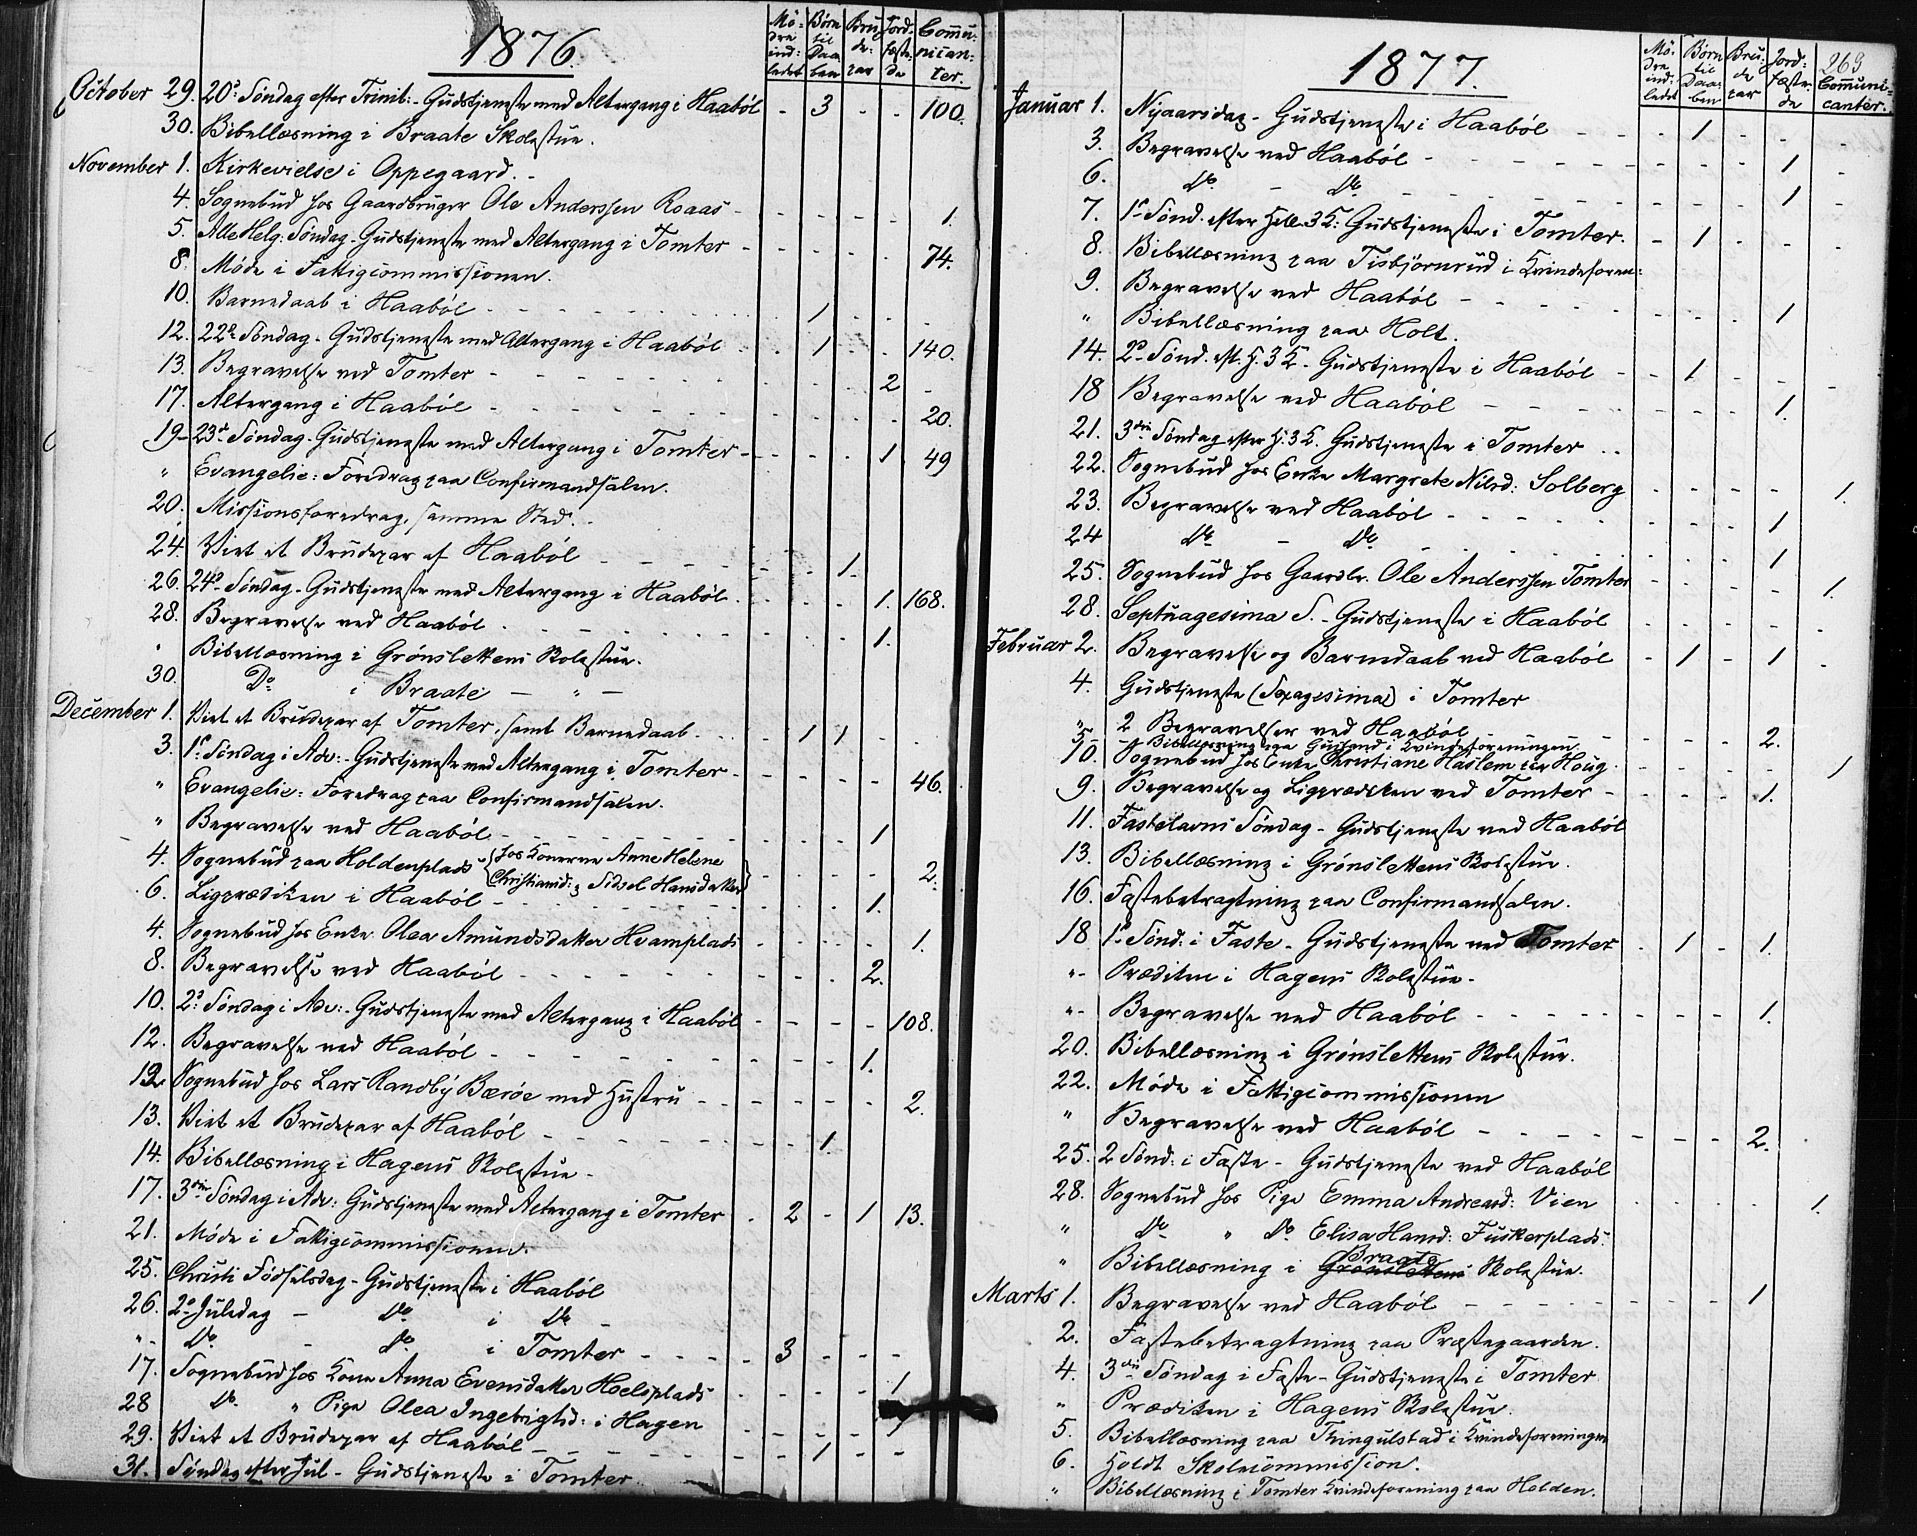 1876.
Mödre indledet
Börn til Daaben
Brudepar
Jordfæstede
Communicanter.
October 29. 20de Söndag efter Trinit: - Gudstjeneste med Altergang i Haaböl - 3 - - 100.
30. Bibellæsning i Braate Skolestue.
November 1. Kirkevielse i Oppegaard.
4. Sognebud hos Gaardbruger Ole Anderssen Roaas - - - - - 1.
5. Alle Helg: Söndag - Gudstjeneste med Altergang i Tomter - - - - - 74.
8. Möde i Fattigcommissionen.
10. Barnedaab i Haaböl - 1 - - -
12. 22de Söndag - Gudstjeneste med Altergang i Haaböl - 1 - - 140.
13. Begravelse ved Tomter - - - - 2 -
17. Altergang i Haaböl - - - - - 20.
19. 23de Söndag - Gudstjeneste med Altergang i Tomter - - - - 1 49
" Evangelie: Foredrag paa Confirmandsalen.
20. Missionsforedrag, samme Sted.
24. Viet et Brudepar af Haaböl - - - 1.
26. 24de Söndag - Gudstjeneste med Altergang i Haaböl - - - 1. 168.
28. Begravelse ved Haaböl - - - - 1.
" Bibellæsning i Grönslettens Skolestue.
30. Do i Braate - " -
December 1. Viet et Brudepar af Tomter, samt Barnedaab - 1 1 - -
3. 1ste Söndag i Adv: - Gudstjeneste med Altergang i Tomter - - - - - 46.
" Evangelie: Foredrag paa Confirmandsalen.
" Begravelse ved Haaböl - - - - 1
4. Sognebud paa Holdenplads {hos Konerne Anne Helene
Christiansd: & Sidsel Hansdatter} - - - - 2.
6. Ligprædiken i Haaböl - - - - 1.
4. Sognebud hos Enke Olea Amundsdatter Hvamplads - - - - 1.
8. Begravelse ved Haaböl - - - - 2.
10. 2den Söndag i Adv: - Gudstjeneste med Altergang i Haaböl - - - - 108.
12. Begravelse ved Haaböl - - - - 1.
12. Sognebud hos Lars Randby Bæröe med Hustru - - - - - 2.
13. Viet et Brudepar af Haaböl - - - 1.
14. Bibellæsning i Hagens Skolestue -
17. 3die Söndag i Adv: Gudstjeneste med Altergang i Tomter - 2 - 1 13.
21. Möde i Fattigcommissionen.
25. Christi Födselsdag - Gudstjeneste i Haaböl
26. 2den Juledag - Do i Do -
" - Do - Do i Tomter - - - 3 - - -
17. Sognebud hos Kone Anna Evensdatter Hoelsplads - - - - 1
28 Do " Pige Olea Ingebrigtsd: i Hagen - - - - 1
29. Viet et Brudepar af Haaböl - - - 1 - -
31. Söndag efter Jul - Gudstjeneste i Tomter
1877.
263
Mödre indledet
Börn til Daaben
Brudepar
Jordfæstede
Communicanter.
Januar 1. Nyaarsdag - Gudstjeneste i Haaböl - - 1 - - -
3. Begravelse ved Haaböl - - - - 1 -
6. Do - Do - - - - 1 -
7. 1ste Sönd. efter Hell. 3 K: Gudstjeneste i Tomter. - 1 - - -
8. Bibellæsning paa Tisbjörnrud i Kvindeforen:
9. Begravelse ved Haaböl - - - - 1
" Bibellæsning paa Holt.
14. 2den Sönd. eft. H. 3 K - Gudstjeneste i Haaböl - - 1 - - -
18 Begravelse ved Haaböl - - - - 1.
21. 3die Söndag efter H. 3 K. Gudstjeneste i Tomter
22. Sognebud hos Enke Margrete Nilsd: Solberg - - - - 1.
23. Begravelse ved Haaböl - - - - 1
24 Do - Do - - - - 1
25. Sognebud hos Gaardbr. Ole Anderssen Tomter - - - - 1.
28. Septuagesima S. - Gudstjeneste i Haaböl - - - - -
Februar 2. Begravelse og Barnedaab ved Haaböl - 1 - 1 -
4. Gudstjeneste (Sexagesima) i Tomter
" 2 Begravelser ved Haaböl - - - - 2.
5. Bibellæsning paa i Kvindeforeningen
10. Sognebud hos Enke Christiane Haslem paa Houg. - - - - 1
9. Begravelse og Ligprædiken ved Tomter - - - - 1.
11. Fastelavns Söndag - Gudstjeneste ved Haaböl
13. Bibellæsning i Grönslettens Skolestue.
16. Fastebetragtning paa Confirmandsalen.
18 1ste Sönd: i Faste - Gudstjeneste ved Tomter - 1 - 1.
" - Prædiken i Hagens Skolestue -
" - Begravelse ved Haaböl - - - - 1.
20. Bibellæsning i Grönslettens Skolestue.
22. Möde i Fattigcommissionen
" Begravelse ved Haaböl - - - - 2.
25. 2 Sönd: i Faste - Gudstjeneste ved Haaböl
28. Sognebud hos Pige Emma Andreasd: Vien - - - - 1.
" Do " Do Elisa Hansd: Fuskerplads.
" Bibellæsning i Grönslettens Braate Skolestue.
Marts 1. Begravelse ved Haaböl - - - - 1
2. Fastebetragtning paa Præstegaarden.
4. 3die Söndag i Faste - Gudstjeneste i Tomter
" Prædiken i Hagens Skolestue.
5. Bibellæsning paa Thingulstad i Kvindeforeningen
6. Holdt Skolecommission.
" Bibellæsning i Tomter Kvindeforening paa Holden.